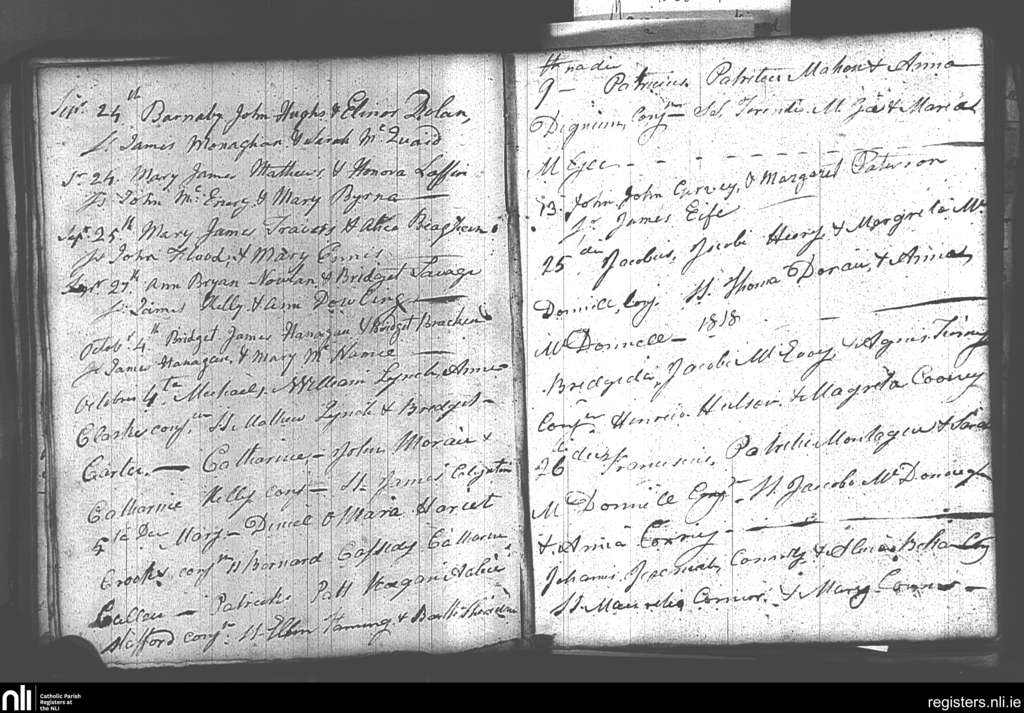 Sepr. 24th Barnaby John Hughs & Elinor Dolan,
Ss. James Monaghan & Sarah McQuaid
Sr. 24. Mary James Mathews, & Honora Laffin
Ss John McEnery, & Mary Byrne
Sepr. 25th Mary James Travers & Alice
Ss John Flood, & Mary Ennis
Sepr 27th Ann Bryan Nowlan & Bridget Savage
Ss. James Kelly & Ann Dowling
Octobr. 4th Bridget James Hanagan & Bridget Bracken
Ss James Hanagan, & Mary McNamee
Octobris 4ta Michael, William Lynch, Anne
Clarke conj. SS. Mathew Lynch & Bridget
Carter. — Catharine, — John Moran &
Catharine Kelly conj — SS. James
5ta Die Mary — Daniel & Maria Hariet
Crooks, conj. SS Bernard Cassidy Catharine
Callan — Patrick Patt Keegan Alice
Stafford conj. SS. Ellen & Bartt. Sheridan
9na die — Patricius, Patritii Mahon & Anna
Dignum, Conj — SS. & Maria
13. John John Garvey, & Margaret Paterson
Ss. James Eife
25 die Jacobus, Jacobi Henry & Margreta Mc
Donnell, Conj. SS. Thoma Doran, & Anna
McDonnell — 1818
Bredgeda, Jacobi McEvoy & Agnes
Conj. Henrico & Magreta Cooney
26 die Franciscus, Patritii Montague & Sara
McDonnell Conj — SS. Jacobo McDonnough
& Anna Conroy
Johannes, Jeremiah Conroy & Alicia
SS. Connor. & Mary Connor —
nli
Catholic Parish
Registers at
the NLI
registers.nli.ie